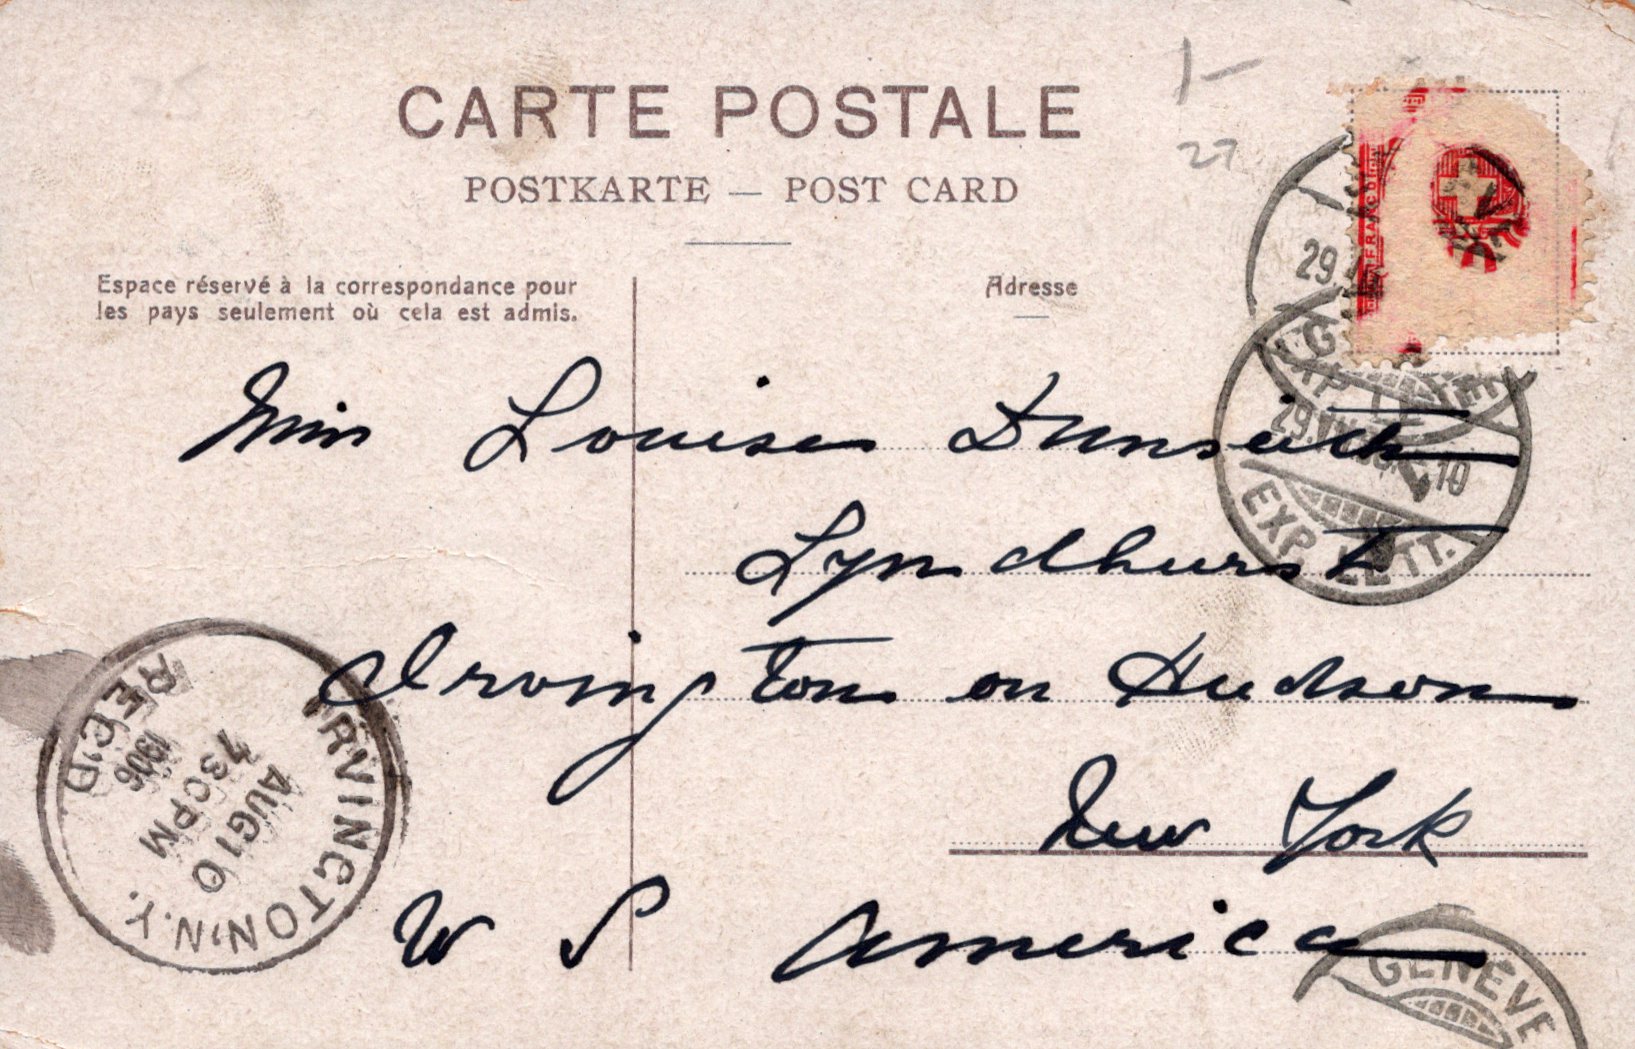 1-
27
25
CARTE POSTALE
POSTKARTE — POST CARD
Espace réservé à la correspondance pour
les pays seulement où cela est admis.
Adresse
FRANCO
29.
EXP. LETT.
29.VII. 10
EXP. LETT.
Miss Louise
Lyndhurst
Irvington on Hudson
New York
U S America
IRVINGTON, N.Y.
AUG 10
730PM
1906
REC'D
GENÈVE